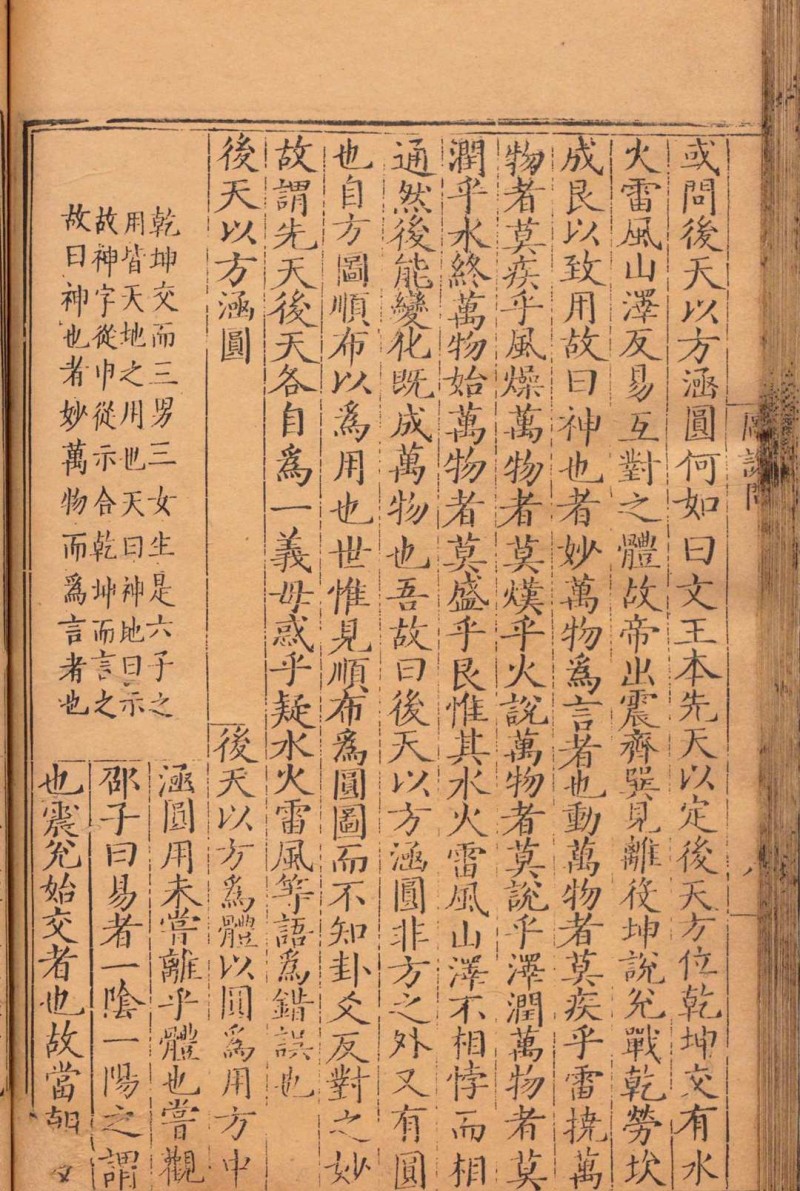 或問後天以方涵圓何如曰文王本先天以定後天方位乾坤交有水
火雷風山澤反易互對之體故帝出震齊巽見離役坤說兌戰乾勞坎
成艮以致用故曰神也者妙萬物爲言者也動萬物者莫疾乎雷撓萬
物者莫疾乎風燥萬物者莫熯乎火說萬物者莫說乎澤潤萬物者莫
潤乎水終萬物始萬物者莫盛乎艮惟其水火雷風山澤不相悖而相
通然後能變化既成萬物也吾故曰後天以方涵圓非方之外又有圓
也自方圖順布以爲用也世惟見順布爲圓圖而不知卦爻反對之妙
故謂先天後天各自爲一義毋惑乎疑水火雷風等語爲錯誤也
後天以方涵圓
後天以方爲體以圓爲用方中
涵圓用未嘗離乎體也嘗觀
邵子曰易者一陰一陽之謂
也震兌始交者也故當朝夕
乾坤交而三男三女生是六子之
用皆天地之用也天曰神地曰示
故神字從申從示合乾坤而言之
故曰神也者妙萬物而爲言者也